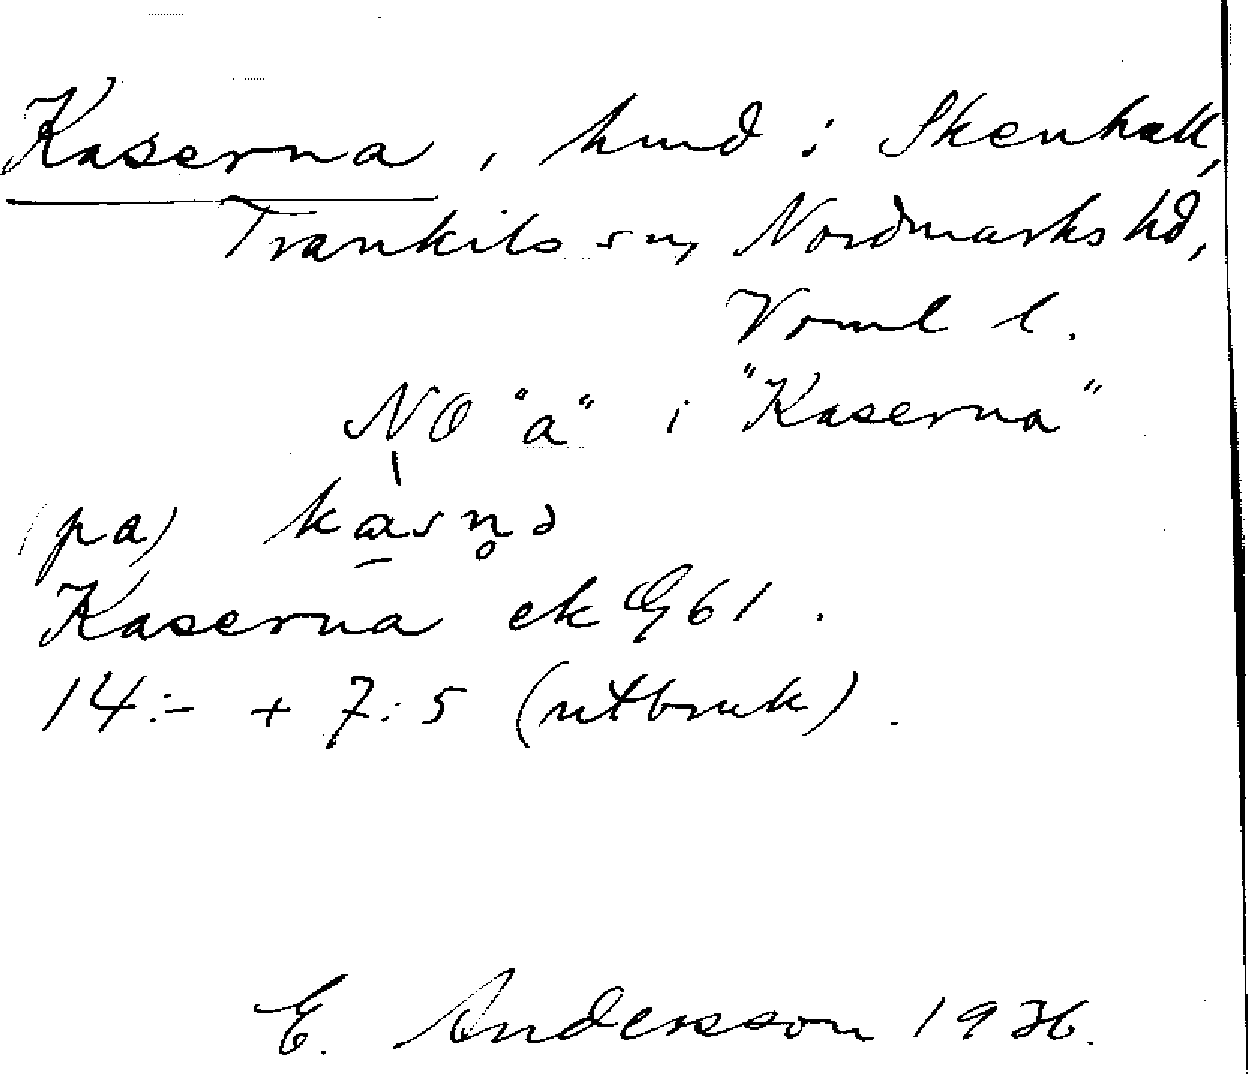 Kaserna, hmd i Skenhall,
Trankils sn, Nordmarks hd,
Vrml l.
NO "a" i "Kaserna"
(pa) kasnə
Kaserna ek G61.
14:- + 7:5 (utbruk).
E. Andersson 1936.